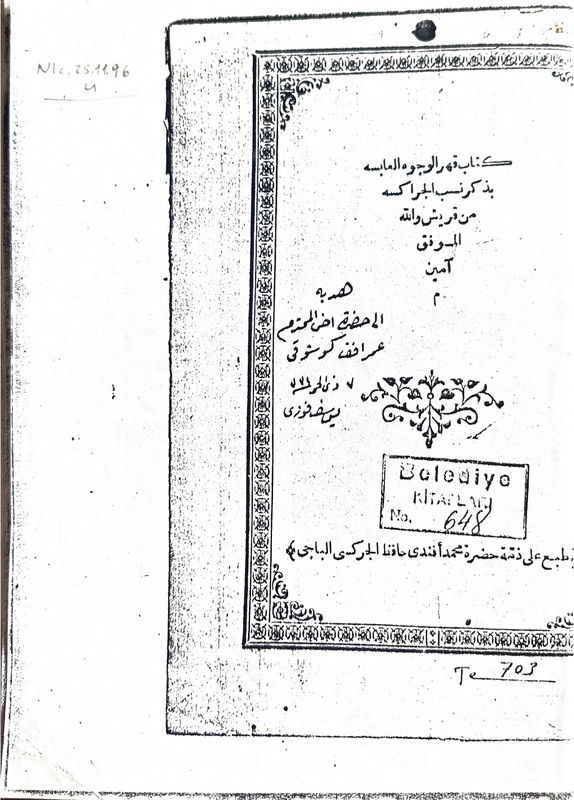 Nlc, 25.11.96
كتاب قهر الوجوه العابسه
بذكر نسب الجراكسه
من قريش والله
الموفق
آمين
م
هديه
الى حضرة اخى المحترم
عمر افق كوشوقى
٧ ذى الحجة
يوسف فوزى
Belediye
KİTAPLARI
No. 648
طبع على ذمة حضرة محمد أفندى حافظ الجركسى الباجى
Te 703